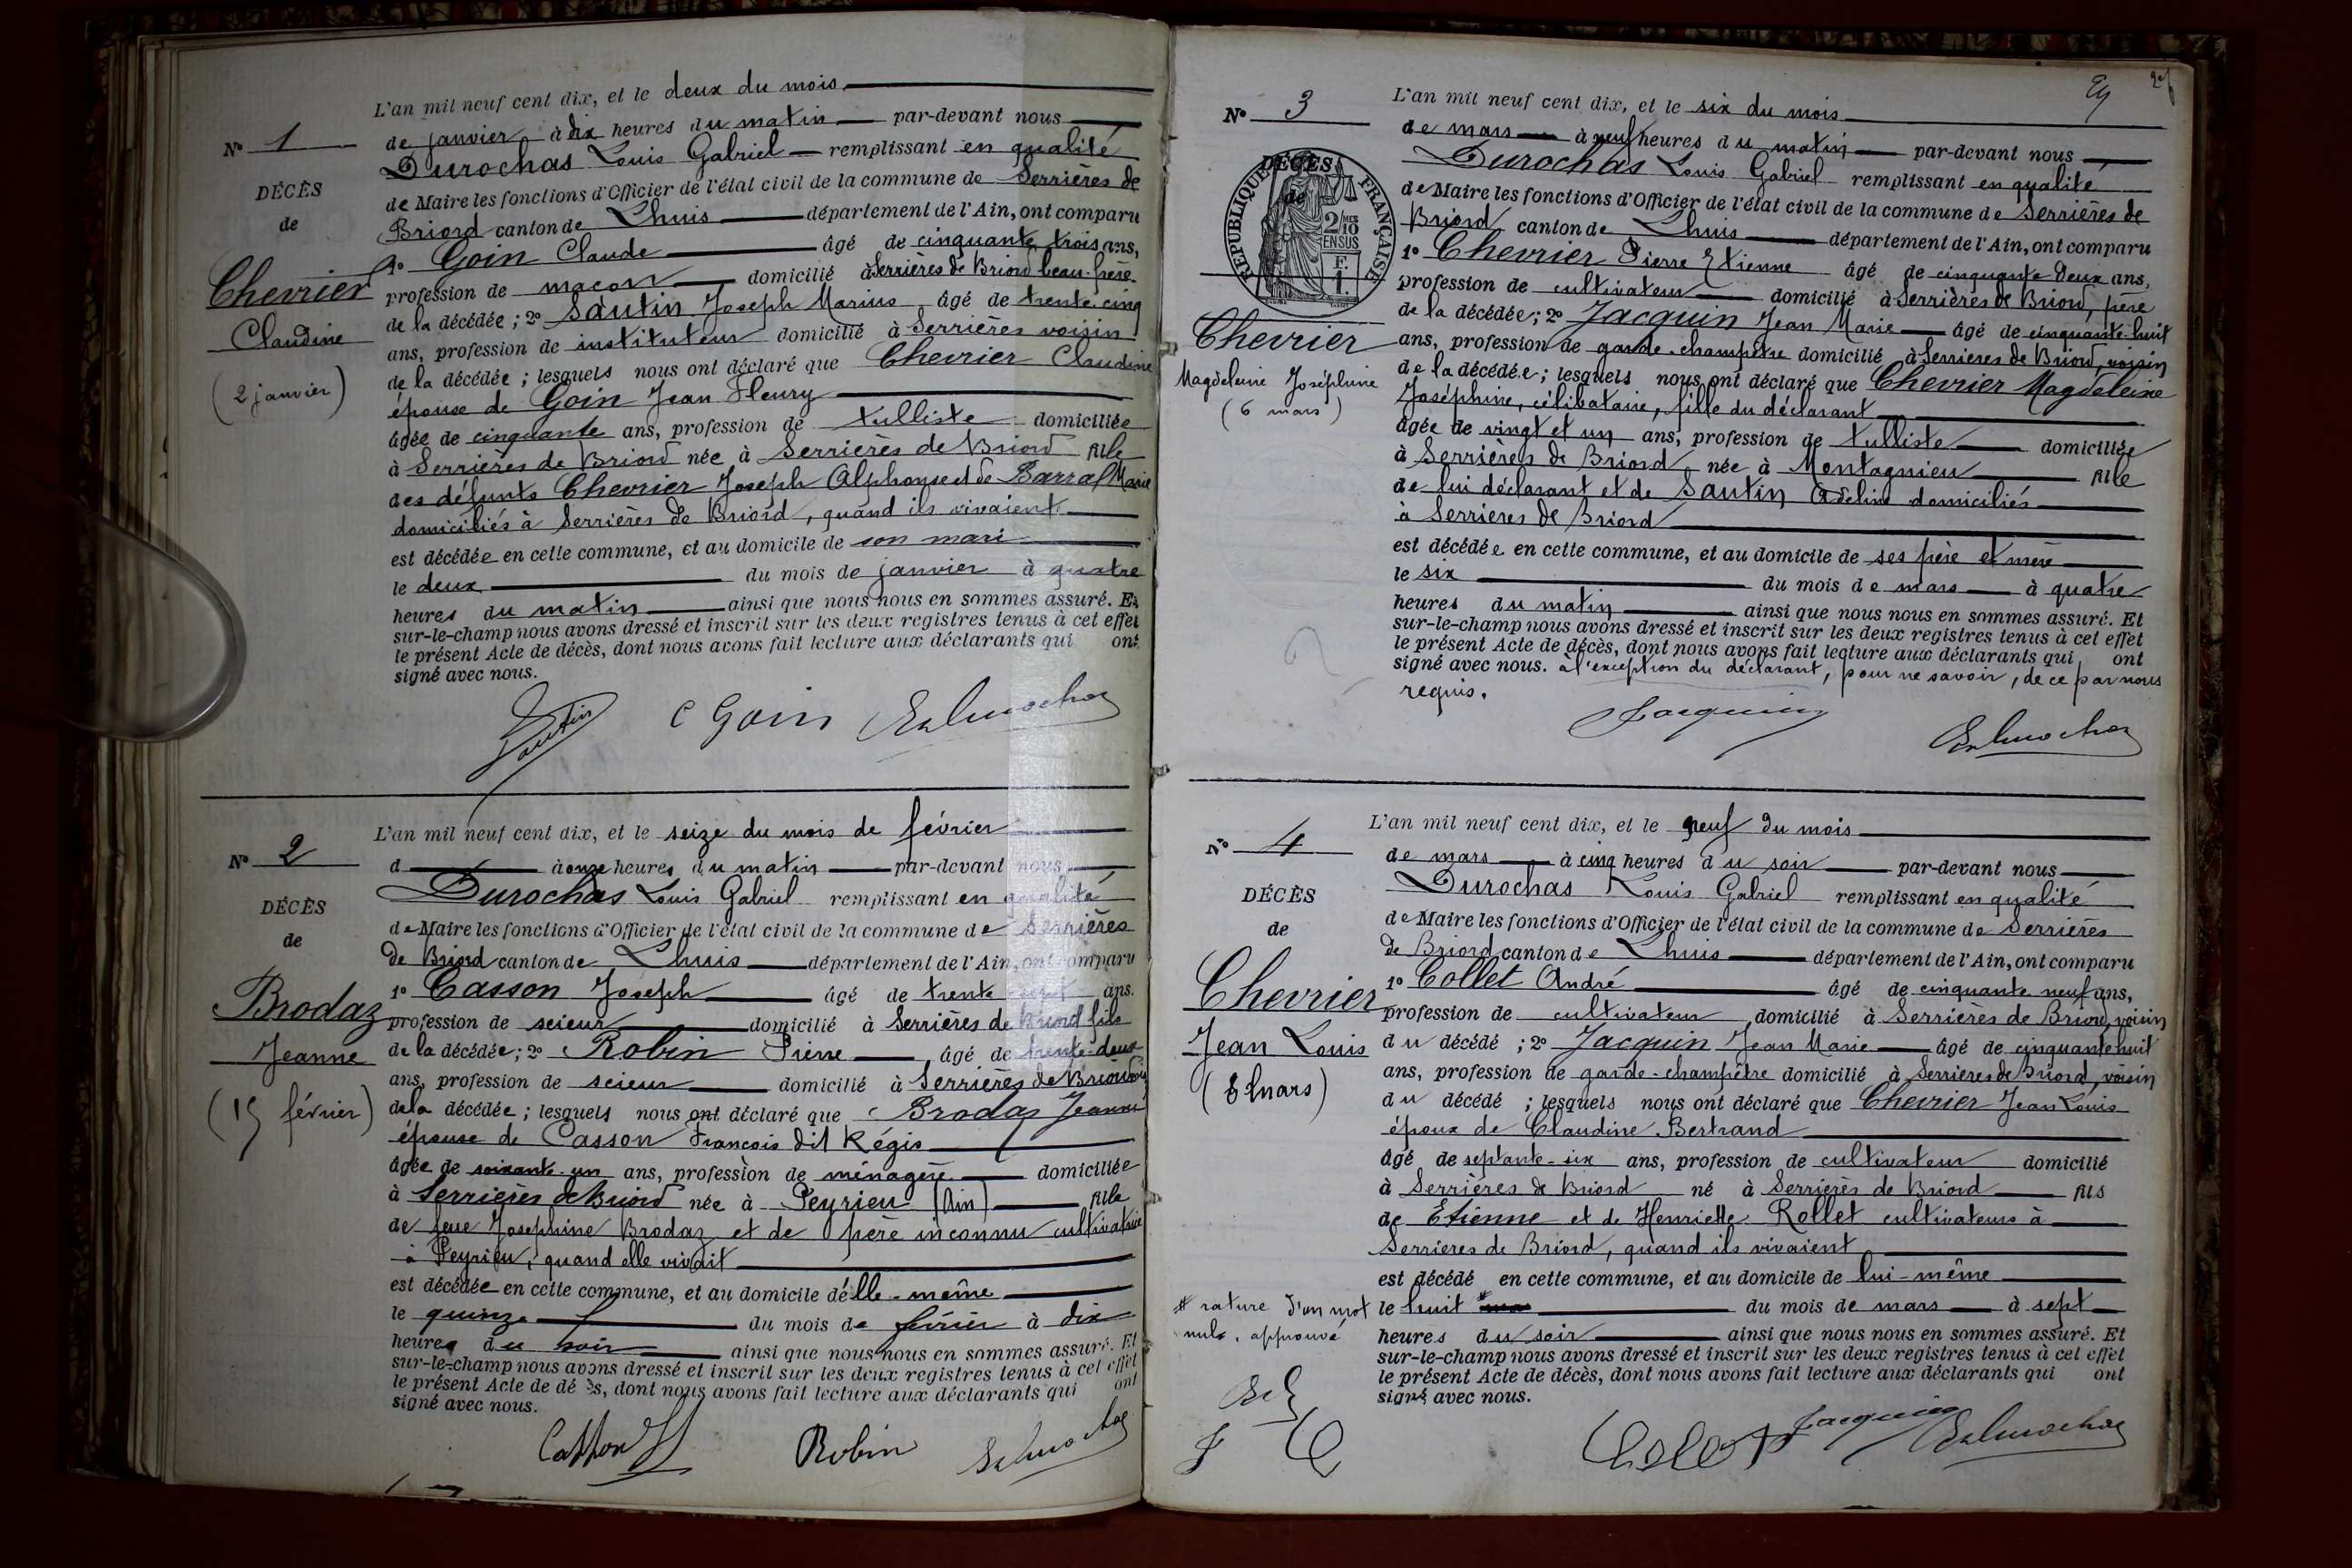 L'an mil neuf cent dix, et le deux du mois
N° 1
de janvier à dix heures du matin par-devant nous
Durochas Louis Gabriel remplissant en qualité
DÉCÈS
de Maire les fonctions d'Officier de l'état civil de la commune de Serrières de
de
Briord canton de Lhuis département de l'Ain, ont comparu
1° Goin Claude âgé de cinquante trois ans,
Chevrier
profession de maçon domicilié à Serrières de Briord beau-frère
Claudine
de la décédée ; 2° Sautin Joseph Marius âgé de trente cinq
ans, profession de instituteur domicilié à Serrières voisin
(2 janvier)
de la décédée ; lesquels nous ont déclaré que Chevrier Claudine
épouse de Goin Jean Fleury
âgée de cinquante ans, profession de tulliste domiciliée
à Serrières de Briord née à Serrières de Briord fille
des défunts Chevrier Joseph Alphonse et de Barral Marie
domiciliés à Serrières de Briord, quand ils vivaient
est décédée en cette commune, et au domicile de son mari
le deux du mois de janvier à quatre
heures du matin ainsi que nous nous en sommes assuré. Et
sur-le-champ nous avons dressé et inscrit sur les deux registres tenus à cet effet
le présent Acte de décès, dont nous avons fait lecture aux déclarants qui ont
signé avec nous.
Sautin C Goin Durochas
L'an mil neuf cent dix, et le seize du mois de février
N° 2
d à onze heures du matin par-devant nous
Durochas Louis Gabriel remplissant en qualité
DÉCÈS
de Maire les fonctions d'Officier de l'état civil de la commune de Serrières
de
de Briord canton de Lhuis département de l'Ain, ont comparu
1° Casson Joseph âgé de trente sept ans.
Brodaz
profession de scieur domicilié à Serrières de Briord fils
Jeanne
de la décédée ; 2° Robin Pierre âgé de trente-deux
ans, profession de scieur domicilié à Serrières de Briord
(15 février)
de la décédée ; lesquels nous ont déclaré que Brodaz Jeanne
épouse de Casson François dit Régis
âgée de soixante-un ans, profession de ménagère domiciliée
à Serrières de Briord née à Peyrieu (Ain) fille
de feue Josephine Brodaz et de père inconnu cultivatrice
à Peyrieu, quand elle vivait
est décédée en cette commune, et au domicile d'elle-même
le quinze du mois de février à dix
heures du soir ainsi que nous nous en sommes assuré. Et
sur-le-champ nous avons dressé et inscrit sur les deux registres tenus à cet effet
le présent Acte de décès, dont nous avons fait lecture aux déclarants qui ont
signé avec nous.
Casson J Robin Durochas
29
L'an mil neuf cent dix, et le six du mois
N° 3
de mars à neuf heures du matin par-devant nous
Durochas Louis Gabriel remplissant en qualité
DÉCÈS
de
RÉPUBLIQUE FRANÇAISE
2/10 MES
EN SUS
F.
1.
de Maire les fonctions d'Officier de l'état civil de la commune de Serrières de
Briord canton de Lhuis département de l'Ain, ont comparu
1° Chevrier Pierre Etienne âgé de cinquante deux ans,
profession de cultivateur domicilié à Serrières de Briord, père
de la décédée ; 2° Jacquin Jean Marie âgé de cinquante-huit
Chevrier
ans, profession de garde-champêtre domicilié à Serrières de Briord, voisin
Magdeleine Joséphine
de la décédée ; lesquels nous ont déclaré que Chevrier Magdeleine
(6 mars)
Joséphine, célibataire, fille du déclarant
âgée de vingt et un ans, profession de tulliste domiciliée
à Serrières de Briord née à Montagnieu fille
de lui déclarant et de Sautin Adeline domiciliés
à Serrières de Briord
est décédée en cette commune, et au domicile de ses père et mère
le six du mois de mars à quatre
heures du matin ainsi que nous nous en sommes assuré. Et
sur-le-champ nous avons dressé et inscrit sur les deux registres tenus à cet effet
le présent Acte de décès, dont nous avons fait lecture aux déclarants qui ont
signé avec nous. à l'exception du déclarant, pour ne savoir, de ce par nous
requis.
Jacquin Durochas
L'an mil neuf cent dix, et le neuf du mois
N° 4
de mars à cinq heures du soir par-devant nous
Durochas Louis Gabriel remplissant en qualité
DÉCÈS
de Maire les fonctions d'Officier de l'état civil de la commune de Serrières
de
de Briord canton de Lhuis département de l'Ain, ont comparu
1° Collet André âgé de cinquante neuf ans,
Chevrier
profession de cultivateur domicilié à Serrières de Briord, voisin
Jean Louis
du décédé ; 2° Jacquin Jean Marie âgé de cinquante huit
ans, profession de garde-champêtre domicilié à Serrières de Briord, voisin
(8 mars)
du décédé ; lesquels nous ont déclaré que Chevrier Jean Louis
époux de Claudine Bertrand
âgé de septante-six ans, profession de cultivateur domicilié
à Serrières de Briord né à Serrières de Briord fils
de Etienne et de Henriette Rollet cultivateurs à
Serrières de Briord, quand ils vivaient
est décédé en cette commune, et au domicile de lui-même
# rature d'un mot
le huit # du mois de mars à sept
nulle, approuvé
heures du soir ainsi que nous nous en sommes assuré. Et
sur-le-champ nous avons dressé et inscrit sur les deux registres tenus à cet effet
le présent Acte de décès, dont nous avons fait lecture aux déclarants qui ont
signé avec nous.
Collet Jacquin Durochas